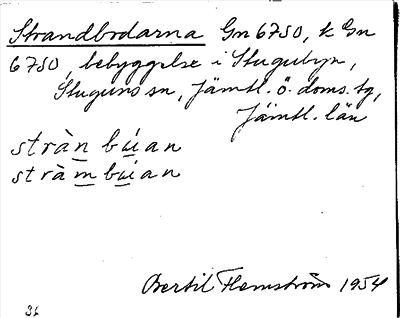 Strandbodarna Gn 6750, k Gn
6750, bebyggelse i Stugubyn,
Stuguns sn, Jämtl. ö. doms. tg,
Jämtl. län
stràn búan
stràm búan
Bertil Flemström 1954
36